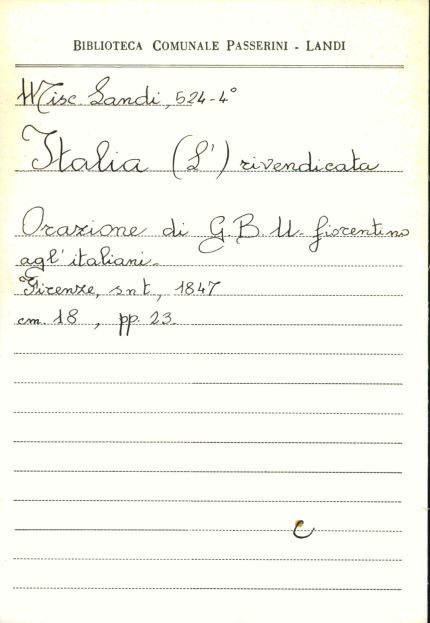 BIBLIOTECA COMUNALE PASSERINI - LANDI
Misc. Landi, 524-4°
Italia (L') rivendicata
Orazione di G.B.U. fiorentino
agl'italiani.
Firenze, snt, 1847
cm. 18 , pp. 23.
C